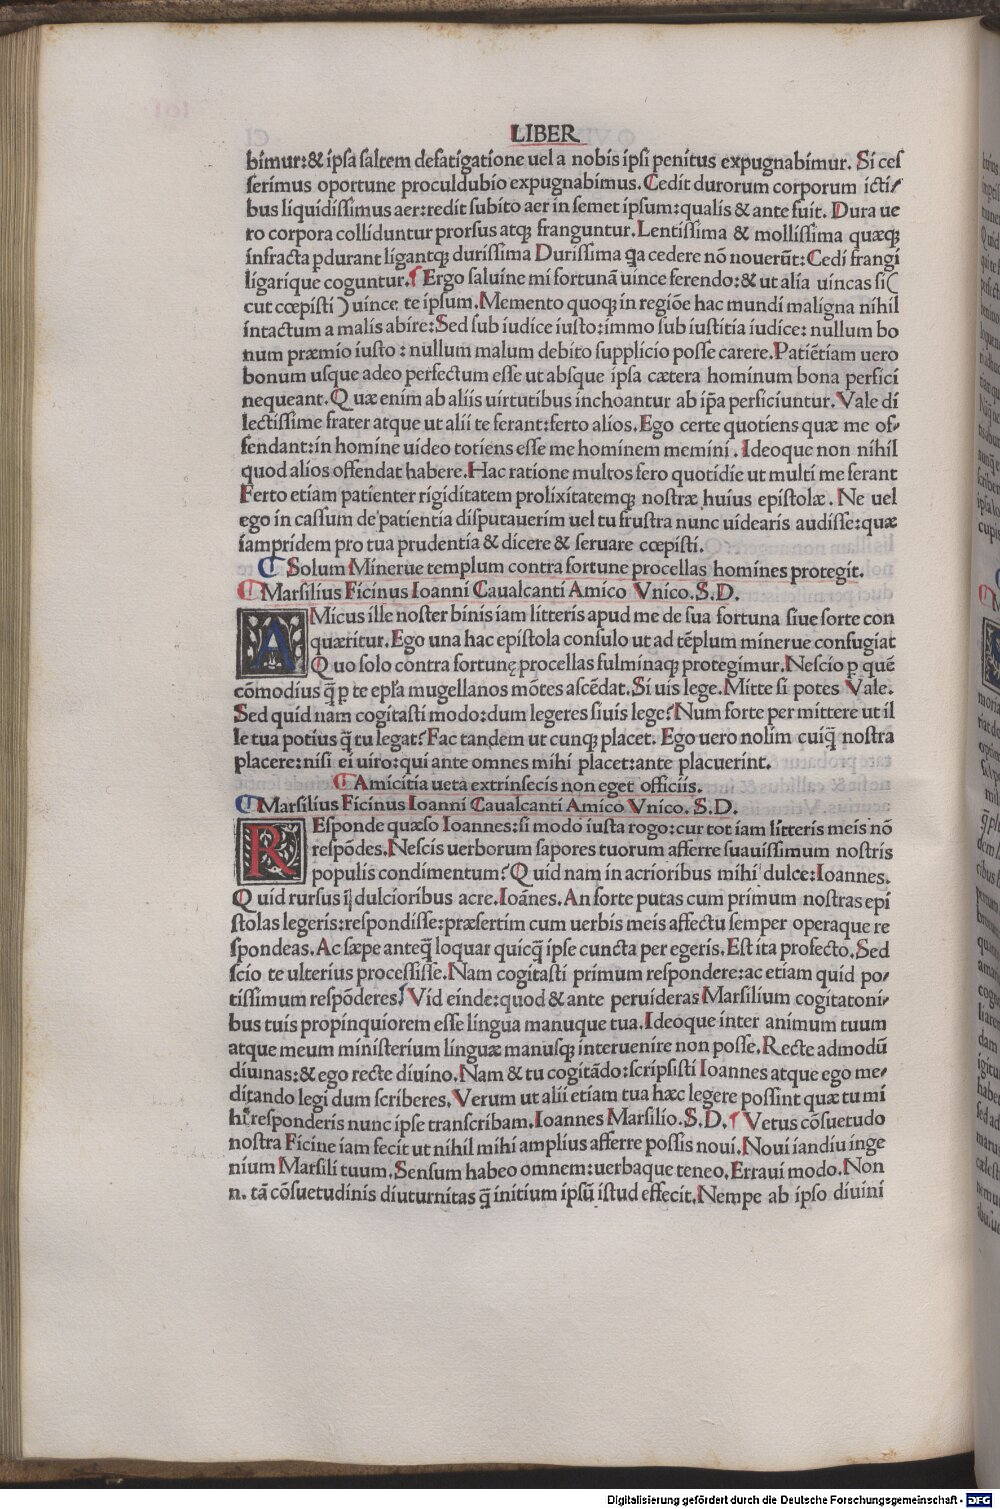 LIBER
bimur:& ipsa saltem defatigatione uel a nobis ipsi penitus expugnabimur. Si ces
serimus oportune proculdubio expugnabimus. Cedit durorum corporum icti⸗
bus liquidissimus aer:redit subito aer in semet ipsum:qualis & ante fuit. Dura ue
ro corpora colliduntur prorsus atqꝫ franguntur. Lentissima & mollissima quæqꝫ
infracta ꝑdurant ligantqꝫ durissima Durissima q̃a cedere nõ nouerũt: Cedi frangi
ligarique coguntur.¶ Ergo saluine mi fortunã uince ferendo:& ut alia uincas si(
cut cœpisti) uince te ipsum. Memento quoqꝫ in regiõe hac mundi maligna nihil
intactum a malis abire: Sed sub iudice iusto:immo sub iustitia iudice: nullum bo
num præmio iusto : nullum malum debito supplicio posse carere. Patiẽtiam uero
bonum usque adeo perfectum esse ut absque ipsa cætera hominum bona perfici
nequeant. Quæ enim ab aliis uirtutibus inchoantur ab ip̃a perficiuntur. Vale di
lectissime frater atque ut alii te ferant:ferto alios. Ego certe quotiens quæ me of⸗
fendant:in homine uideo totiens esse me hominem memini . Ideoque non nihil
quod alios offendat habere. Hac ratione multos fero quotidie ut multi me ferant
Ferto etiam patienter rigiditatem prolixitatemqꝫ nostræ huius epistolæ. Ne uel
ego in cassum de patientia disputauerim uel tu frustra nunc uidearis audisse:quæ
iampridem pro tua prudentia & dicere & seruare cœpisti.
¶ Solum Minerue templum contra fortune procellas homines protegit.
¶ Marsilius Ficinus Ioanni Caualcanti Amico Vnico. S. D.
AMicus ille noster binis iam litteris apud me de sua fortuna siue sorte con
quæritur. Ego una hac epistola consulo ut ad tẽplum minerue confugiat
Quo solo contra fortunę procellas fulminaqꝫ protegimur. Nescio ꝑ quẽ
cõmodius q̃ ꝑ te epl̃a mugellanos mõtes ascẽdat. Si uis lege. Mitte si potes Vale.
Sed quid nam cogitasti modo:dum legeres si uis lege? Num forte per mittere ut il
le tua potius q̃ tu legat? Fac tandem ut cunqꝫ placet. Ego uero nolim cuiq̃ nostra
placere:nisi ei uiro:qui ante omnes mihi placet:ante placuerint.
¶ Amicitia ueta extrinsecis non eget officiis.
¶ Marsilius Ficinus Ioanni Caualcanti Amico Vnico. S. D.
REsponde quæso Ioannes:si modo iusta rogo:cur tot iam litteris meis nõ
respõdes. Nescis uerborum sapores tuorum afferre suauissimum nostris
populis condimentum? Quid nam in acrioribus mihi dulce: Ioannes.
Quid rursus ĩ dulcioribus acre. Ioãnes. An forte putas cum primum nostras epi
stolas legeris:respondisse:præsertim cum uerbis meis affectu semper operaque re
spondeas. Ac sæpe anteq̃ loquar quicq̃ ipse cuncta per egeris. Est ita profecto. Sed
scio te ulterius processisse. Nam cogitasti primum respondere:ac etiam quid po⸗
tissimum respõderes! Vid einde:quod & ante peruideras Marsilium cogitatoni⸗
bus tuis propinquiorem esse lingua manuque tua. Ideoque inter animum tuum
atque meum ministerium linguæ manusqꝫ interuenire non posse. Recte admodũ
diuinas:& ego recte diuino. Nam & tu cogitãdo:scripsisti Ioannes atque ego me⸗
ditando legi dum scriberes. Verum ut alii etiam tua hæc legere possint quæ tu mi
hi responderis nunc ipse transcribam. Ioannes Marsilio. S. D. ¶ Vetus cõsuetudo
nostra Ficine iam fecit ut nihil mihi amplius afferre possis noui. Noui iandiu inge
nium Marsili tuum. Sensum habeo omnem:uerbaque teneo. Erraui modo. Non
n. tã cõsuetudinis diuturnitas q̃ initium ipsũ istud effecit. Nempe ab ipso diuini
Digitalisierung gefördert durch die Deutsche Forschungsgemeinschaft - DFG